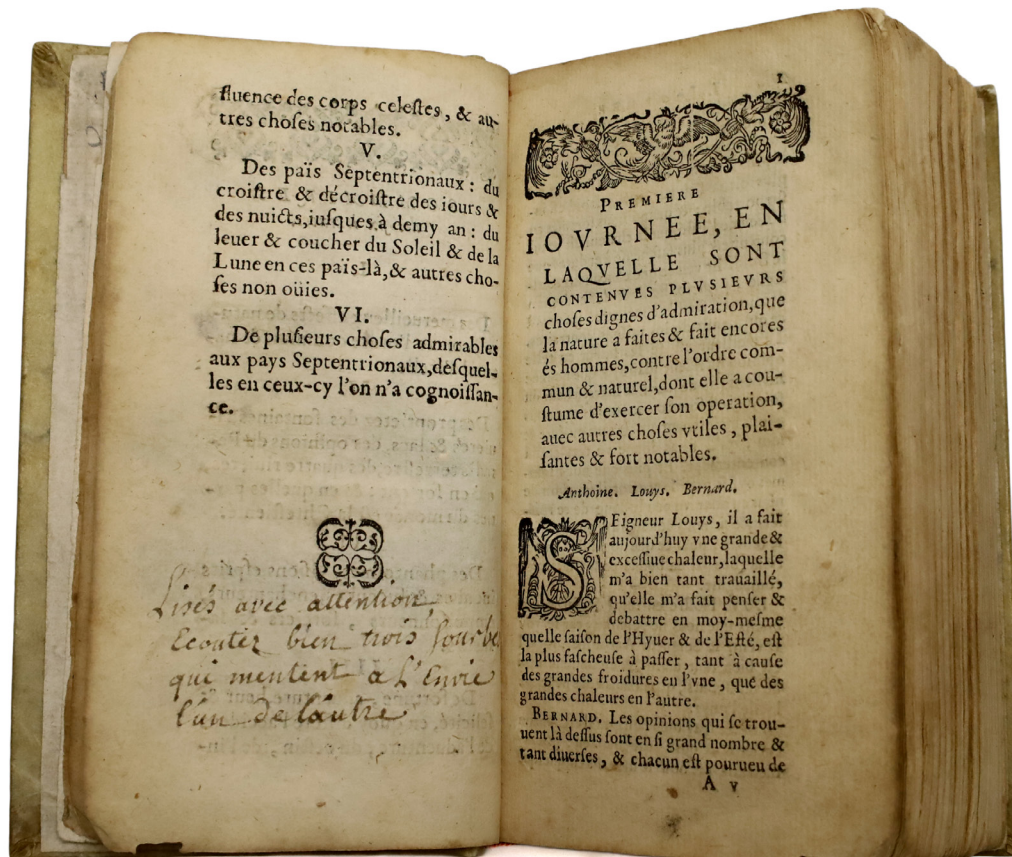 fluence des corps celeſtes, & au-
tres choſes notables.
V.
Des païs Septentrionaux : du
croiſtre & décroiſtre des iours &
des nuicts, iuſques à demy an : du
leuer & coucher du Soleil & de la
Lune en ces païs-là, & autres cho-
ſes non oüies.
VI.
De pluſieurs choſes admirables
aux pays Septentrionaux, deſquel-
les en ceux-cy l'on n'a cognoiſſan-
ce.
Lisés avec attention
Ecoutez bien trois fourbe
qui mentent a L'Envie
l'un de lautre
1
PREMIERE
IOVRNEE, EN
LAQVELLE SONT
CONTENVES PLVSIEVRS
choſes dignes d'admiration, que
la nature a faites & fait encores
és hommes, contre l'ordre com-
mun & naturel, dont elle a cou-
ſtume d'exercer ſon operation,
auec autres choſes vtiles, plai-
ſantes & fort notables.
Anthoine. Louys. Bernard.
SEigneur Louys, il a fait
aujourd'huy vne grande &
exceſſiue chaleur, laquelle
m'a bien tant trauaillé,
qu'elle m'a fait penſer &
debattre en moy-meſme
quelle ſaiſon de l'Hyuer & de l'Eſté, eſt
la plus faſcheuſe à paſſer, tant à cauſe
des grandes froidures en l'vne, que des
grandes chaleurs en l'autre.
BERNARD. Les opinions qui ſe trou-
uent là deſſus ſont en ſi grand nombre &
tant diuerſes, & chacun eſt pourueu de
A v